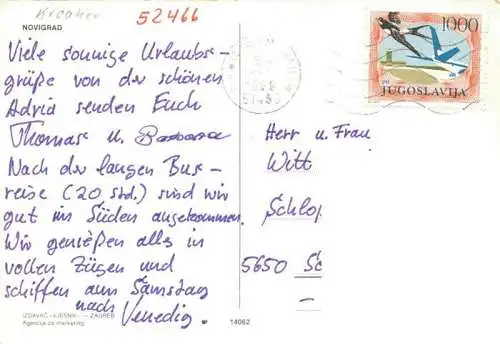 52466
NOVIGRAD
Viele sonnige Urlaubs-
grüße von der schönen
Adria senden Euch
Thomas u. Barbara
Nach der langen Bus-
reise (20 Std.) sind wir
gut im Süden angekommen.
Wir genießen alles in
vollen Zügen und
schiffen am Samstag
nach Venedig.
IZDAVAČ »VJESNIK« – ZAGREB
Agencija za marketing
14062
1000
JUGOSLAVIJA
Herr u. Frau
Witt
Schlo
5650 Sc